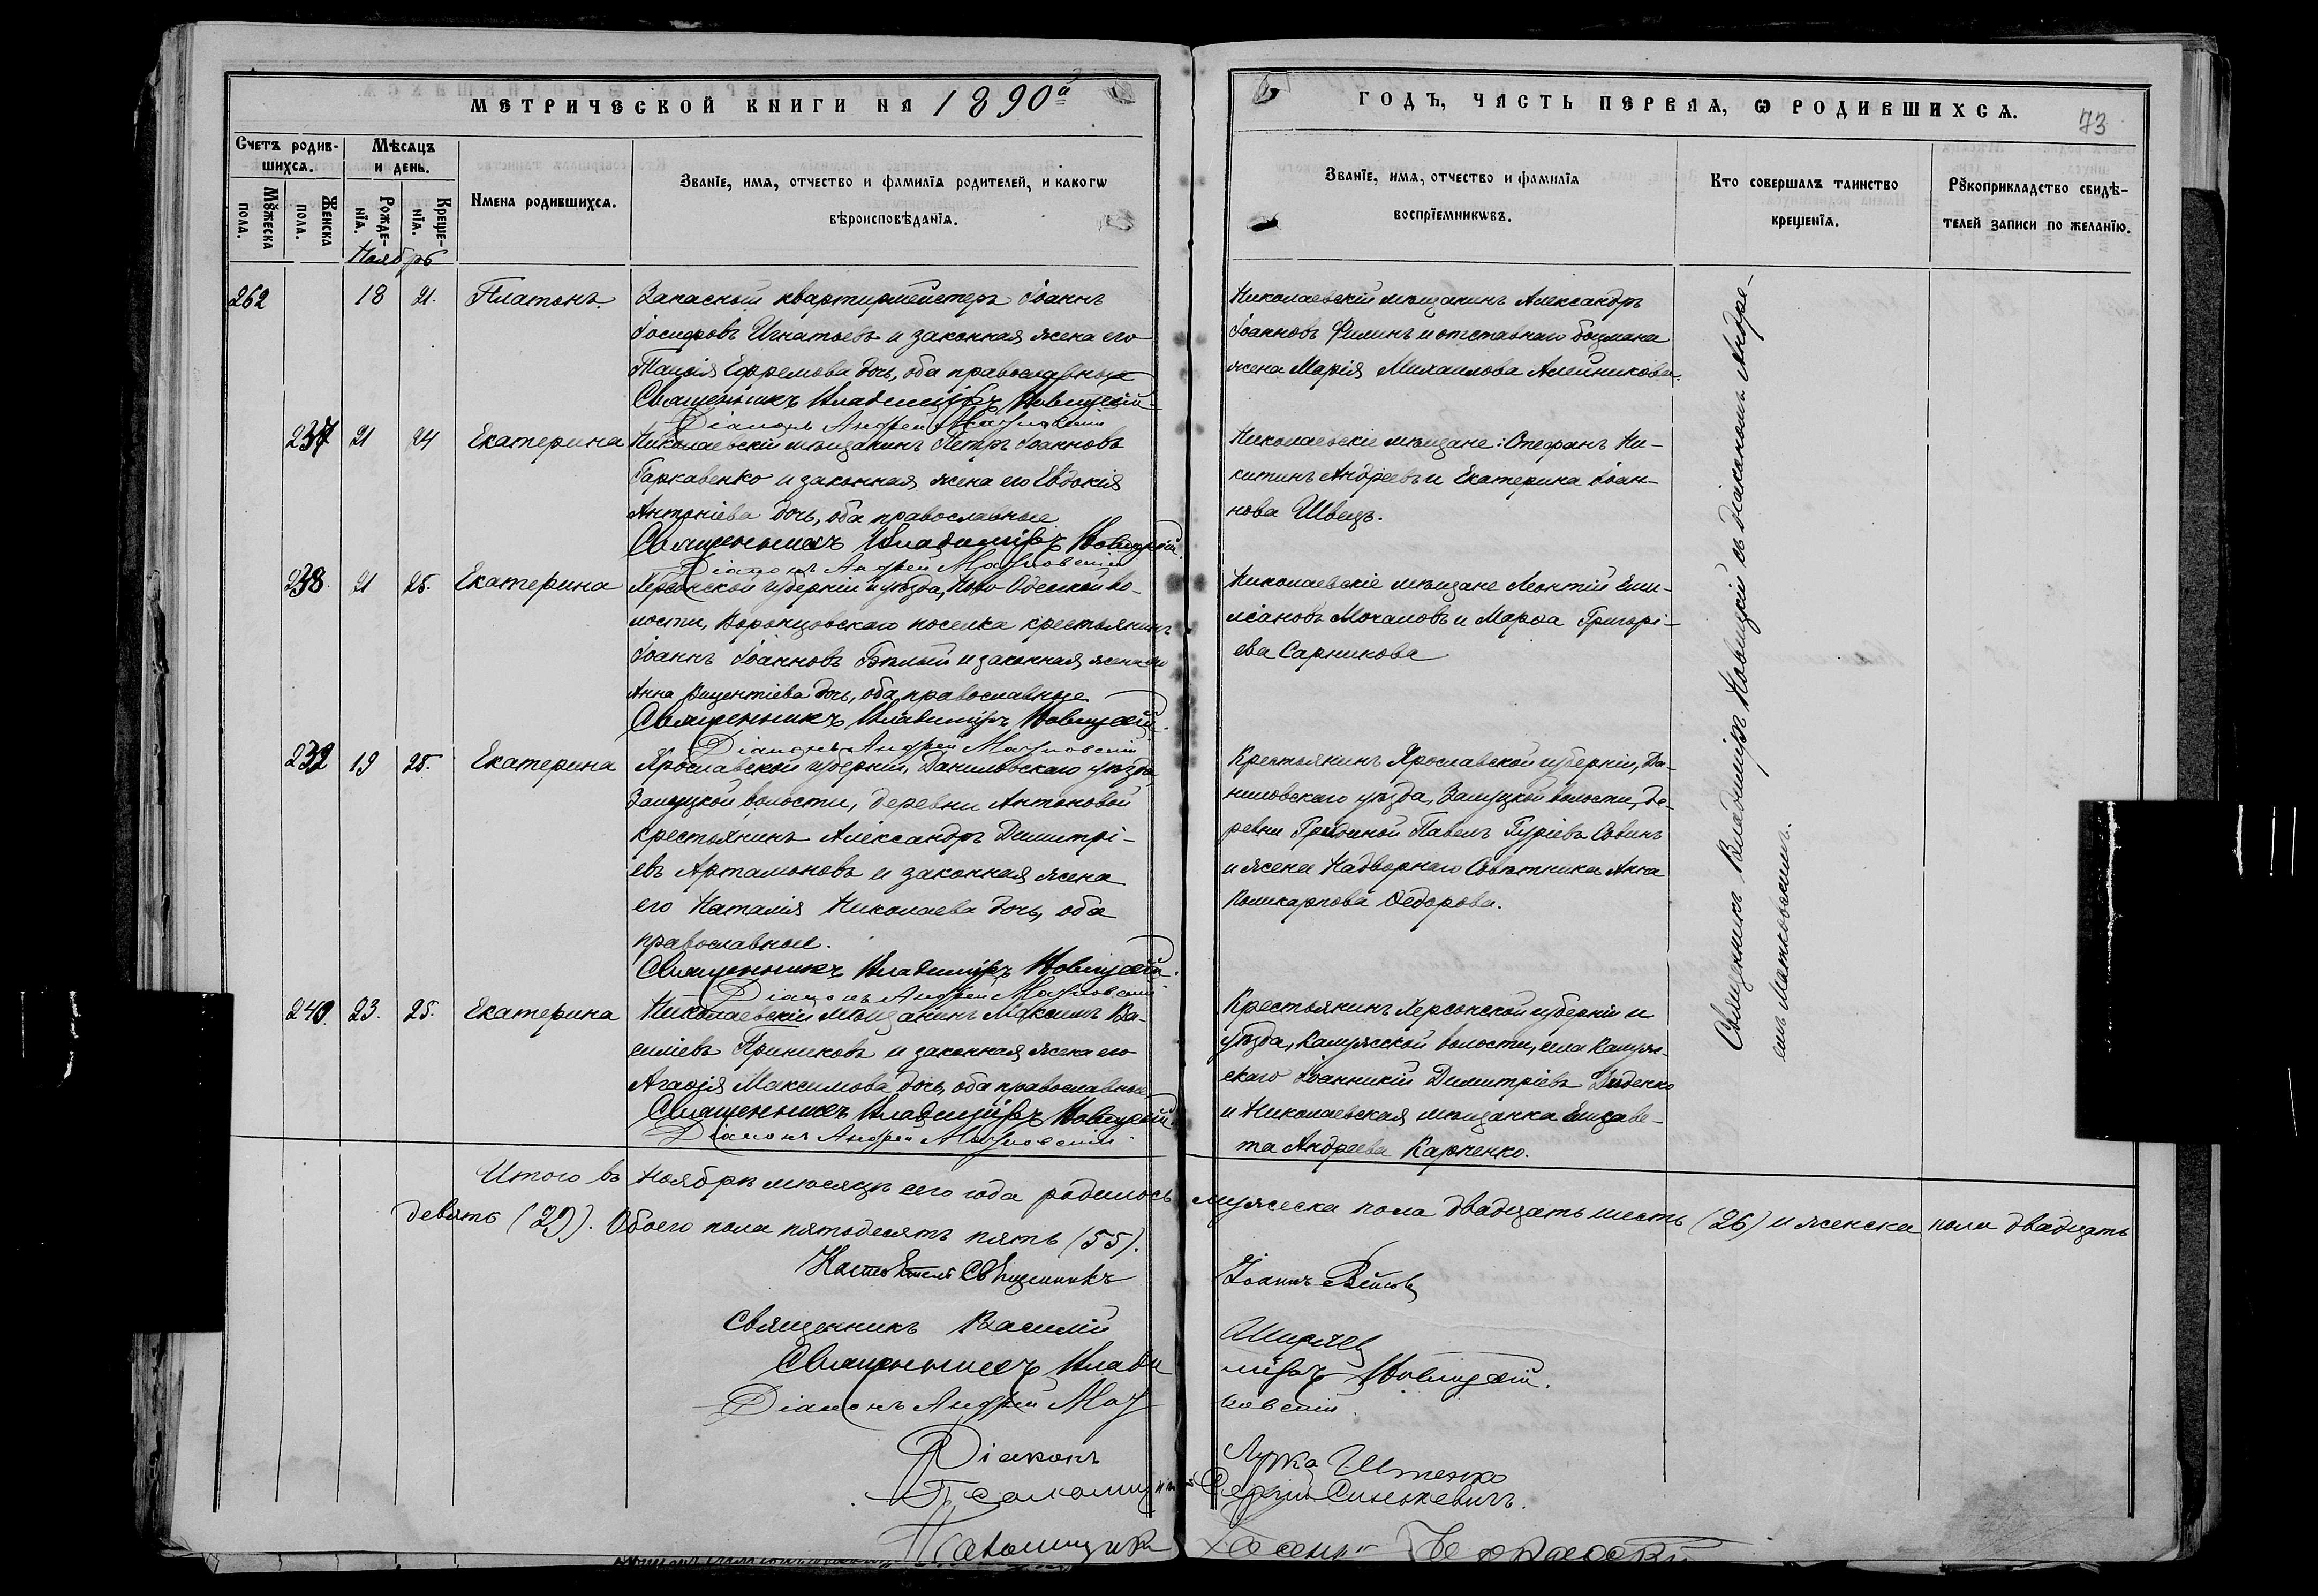 МЕТРИЧЕСКОЙ КНИГИ НА 1890й
ГОДЪ, ЧАСТЬ ПЕРВАЯ, Ѡ РОДИВШИХСЯ.
73
Счетъ родив-
шихся.
Мѣсяцъ
и день.
Мужеска
пола.
Женска
пола.
Рожде-
нїя.
Креще-
нїя.
Имена родившихся.
Званїе, имя, отчество и фамилїя родителей, и какогѡ
вѣроисповѣданїя.
Званїе, имя, отчество и фамилїя
воспрїемникѡвъ.
Кто совершалъ таинство
крещенїя.
Рукоприкладство свидѣ-
телей записи по желанїю.
Ноябрь
262 18 21. Платонъ
Запасный квартирмейстеръ Іоаннъ
Іосифовъ Игнатьевъ и законная жена его
Таисія Ефремова дочь, оба православные
Священникъ Владиміръ Новицкій
Діаконъ Андрей
Николаевскій мѣщанинъ Александръ
Іоанновъ Филинъ и отставнаго боцмана
жена Марія Михаилова Алейникова.
237 21 24 Екатерина
Николаевскій мѣщанинъ Петръ Іоанновъ
Гаркавенко и законная жена его Евдокія
Антоніева дочь, оба православные
Священникъ Владиміръ Новицкій.
Діаконъ Андрей
Николаевскіе мѣщане: Стефанъ Ни-
китинъ Андреевъ и Екатерина Іоан-
нова Швецъ.
238. 21 25. Екатерина
Херсонской губерніи и уѣзда, Ново-Одесской во-
лости, Воронцовскаго поселка крестьянинъ
Іоаннъ Іоанновъ Бѣлый и законная жена его
Анна Викентіева дочь, оба православные
Священникъ Владиміръ Новицкій.
Діаконъ Андрей
Николаевскіе мѣщане Леонтій Еми-
ліановъ Мочаловъ и Марѳа Григорі-
ева Сарникова
239 19 25. Екатерина
Ярославской губерніи, Даниловскаго уѣзда,
Залуцкой волости, деревни Антоновой
крестьянинъ Александръ Димитрі-
евъ Артамоновъ и законная жена
его Наталія Николаева дочь, оба
православные.
Священникъ Владиміръ Новицкій.
Діаконъ Андрей
Крестьянинъ Ярославской губерніи, Да-
ниловскаго уѣзда, Залуцкой волости, де-
ревни Павелъ Гуріевъ
и жена Надворнаго Совѣтника Анна
Поликарпова Ѳедорова.
240. 23. 25. Екатерина
Николаевскій мѣщанинъ Максимъ Ва-
силіевъ и законная жена его
Агаѳія Максимова дочь, оба православные
Священникъ Владиміръ Новицкій.
Діаконъ Андрей
Крестьянинъ Херсонской губерніи и
уѣзда, Калужской волости, села Калуж-
скаго Іоанникій Димитріевъ Диденко
и Николаевская мѣщанка Елизаве-
та Андреева Карпенко.
Священникъ Владиміръ Новицкій съ діакономъ Андре-
емъ
Итого въ Ноябрѣ мѣсяцѣ сего года родилось мужеска пола двадцать шесть (26) и женска пола двадцать
девять (29). Обоего пола пятьдесятъ пять (55).
Настоятель Священникъ Іоаннъ
Священникъ Василій
Священникъ Владиміръ Новицкій.
Діаконъ Андрей
Діаконъ Лука
Псаломщикъ Сергій Синькевичъ.
Псаломщикъ